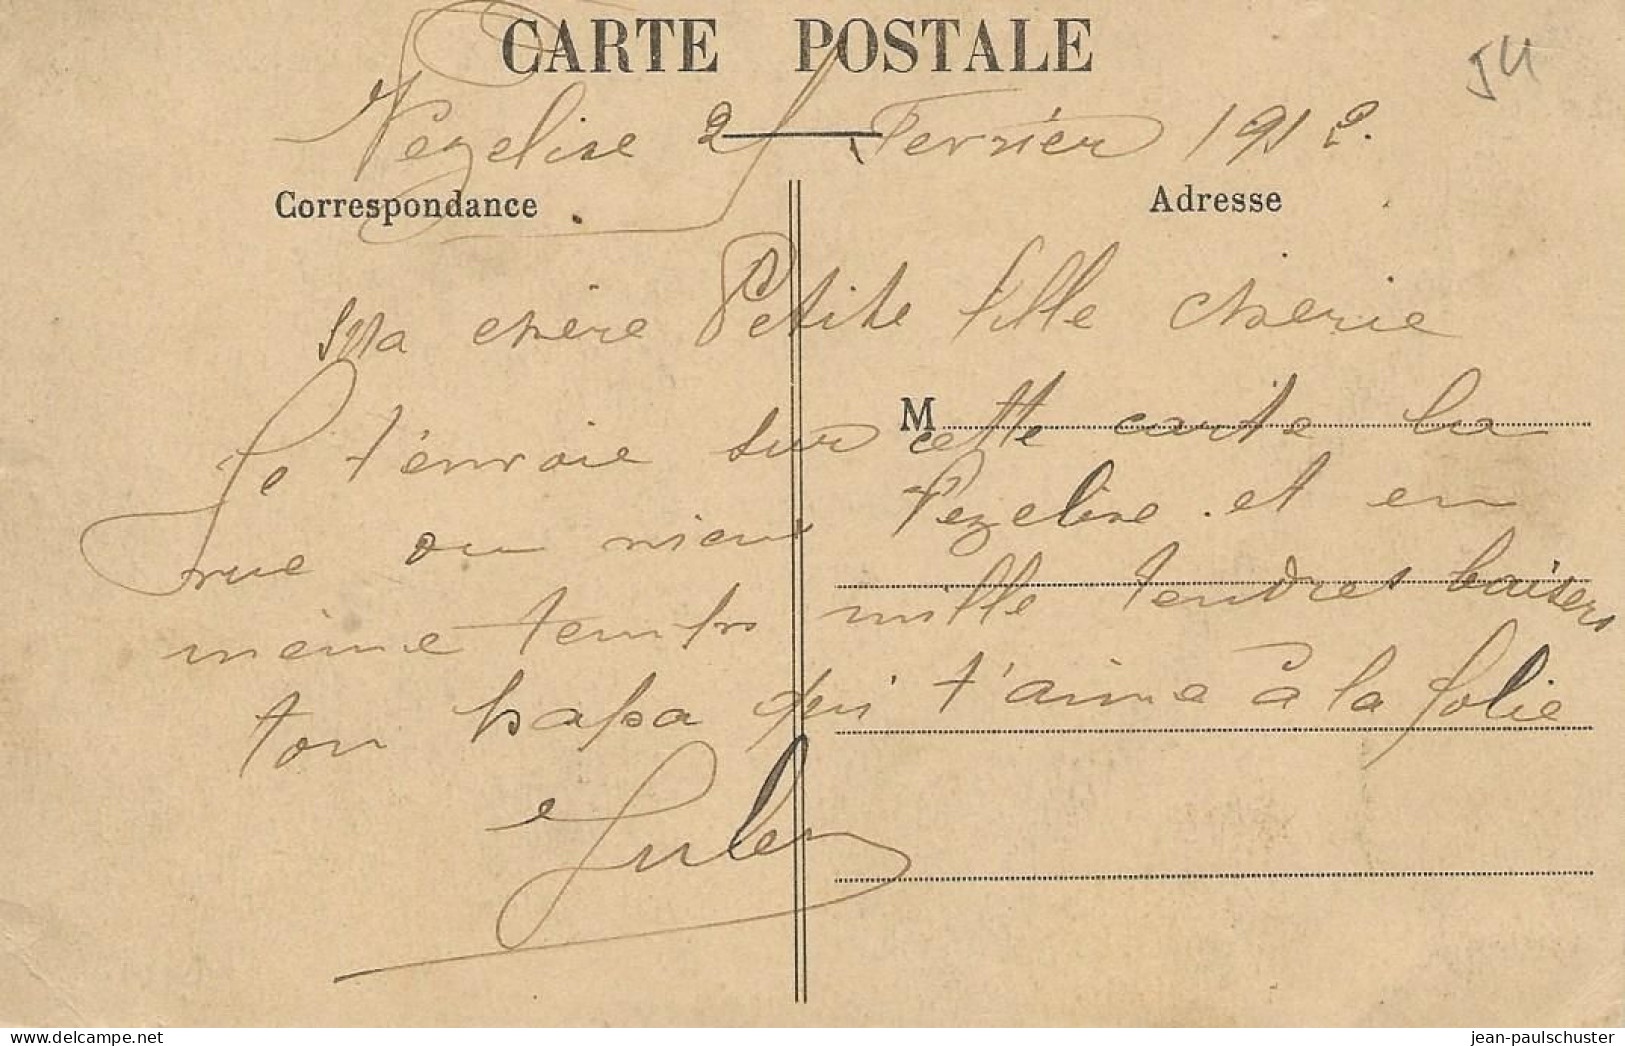 CARTE POSTALE
54
Vezelise 2 Fevrier 1912.
Correspondance
Adresse
Ma chère Petite fille cherie
M
Je t'envoie sur cette carte la
vue ou mieux Vezelise. et en
même temps mille tendres baisers
ton papa qui t'aime à la folie
Jules
delcampe.net
jean-paulschuster